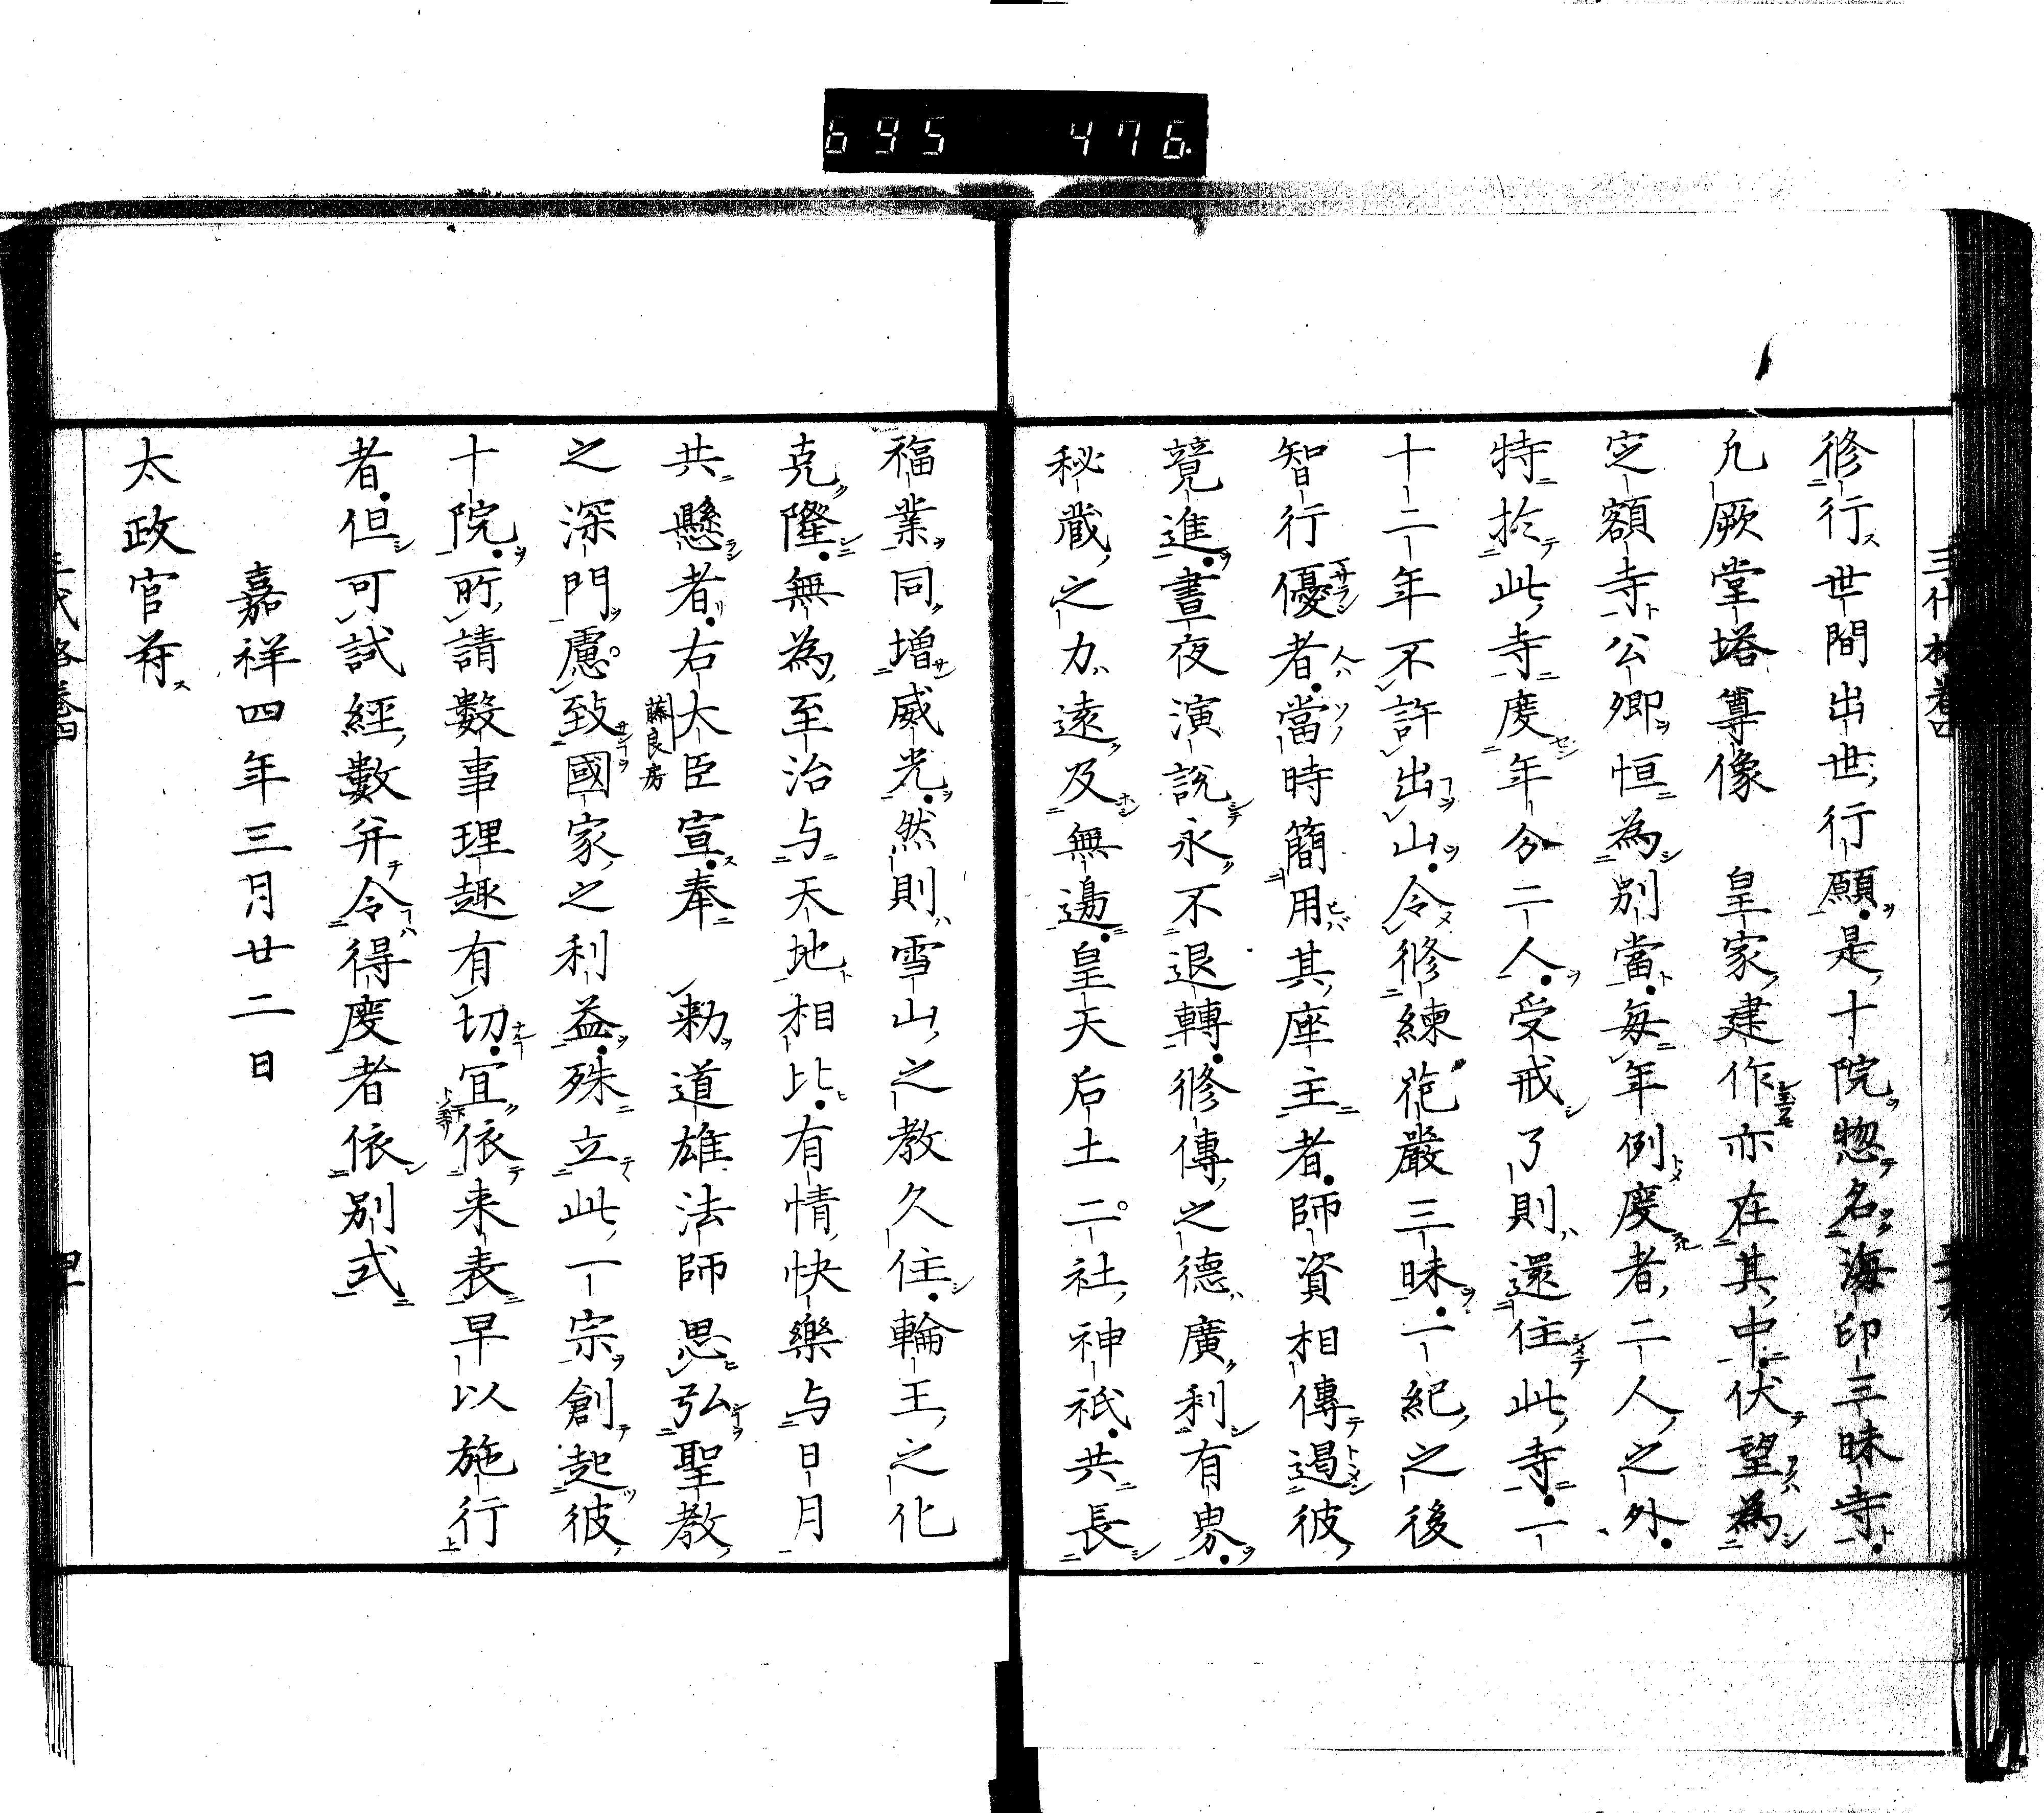 695 476
修行世間出世行願是十院惣名海印三昧寺
凡厥堂塔尊像　皇家建作亦在其中伏望為
定額寺公卿恒為別當毎年例度者二人之外
特於此寺度年分二人受戒了則還住此寺一
十二年不許出山令修練花嚴三昧一紀之後
智行優者當時簡用其座主者師資相傳遏彼
競進晝夜演說永不退轉修傳之德廣利有界
秘蔵之力遠及無邊皇天后土二社神祇共長
福業同増威光然則雪山之教久住輪王之化
克隆無為至治与天地相比有情快樂与日月
共懸者右大臣宣奉　勅道雄法師思弘聖教
藤良房
之深門慮致國家之利益殊立此一宗創起彼
十院所請數事理趣有切宜依来表早以施行
者但可試經數并令得度者依別式
嘉祥四年三月廿二日
太政官符